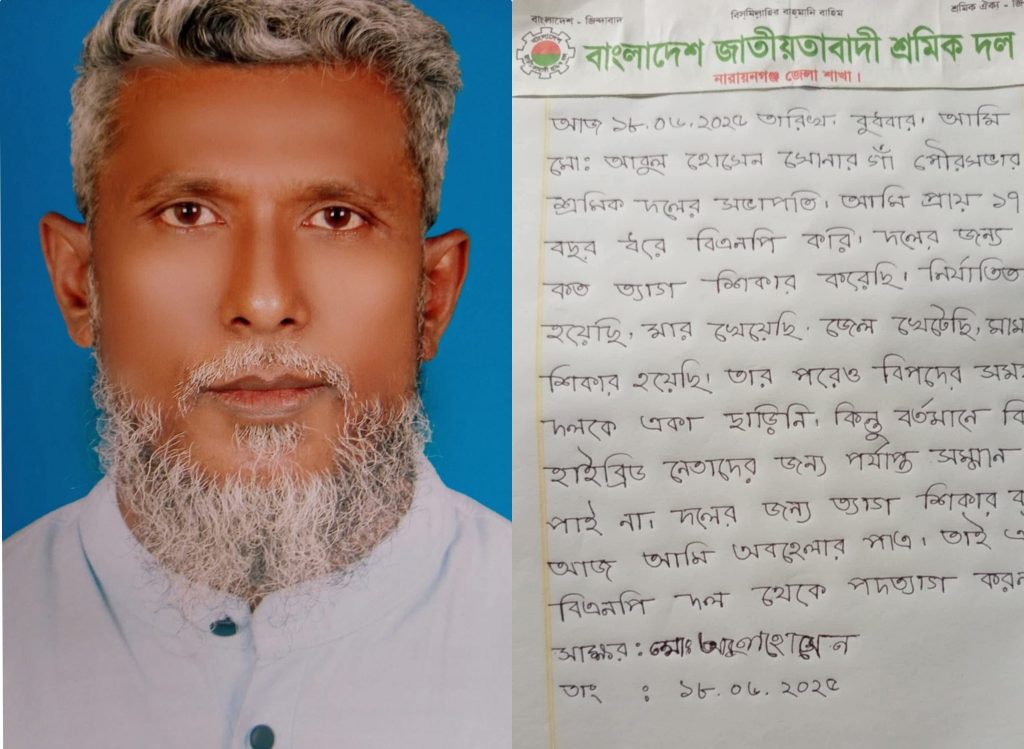 বাংলাদেশ - জিন্দাবাদ
বিসমিল্লাহির রাহমানির রাহিম
শ্রমিক ঐক্য - জি
বাংলাদেশ জাতীয়তাবাদী শ্রমিক দল
নারায়নগঞ্জ জেলা শাখা।
আজ ১৮.০৬.২০২৫ তারিখ, বুধবার, আমি
মো: আবুল হোসেন সোনার গাঁ পৌরসভার
শ্রমিক দলের সভাপতি। আমি প্রায় ১৭
বছর ধরে বিএনপি করি, দলের জন্য
কত ত্যাগ শিকার করেছি। নির্যাতিত
হয়েছি, মার খেয়েছি, জেল খেটেছি, মাম
শিকার হয়েছি। তার পরেও বিপদের সময়
দলকে একা ছাড়িনি, কিন্তু বর্তমানে কি
হাইব্রিড নেতাদের জন্য পর্যাপ্ত সম্মান
পাই না। দলের জন্য ত্যাগ শিকার ক
আজ আমি অবহেলার পাত্র। তাই এ
বিএনপি দল থেকে পদত্যাগ করল
সাক্ষর : মোঃ আবুল হোসেন
তাং : ১৮.০৬.২০২৫